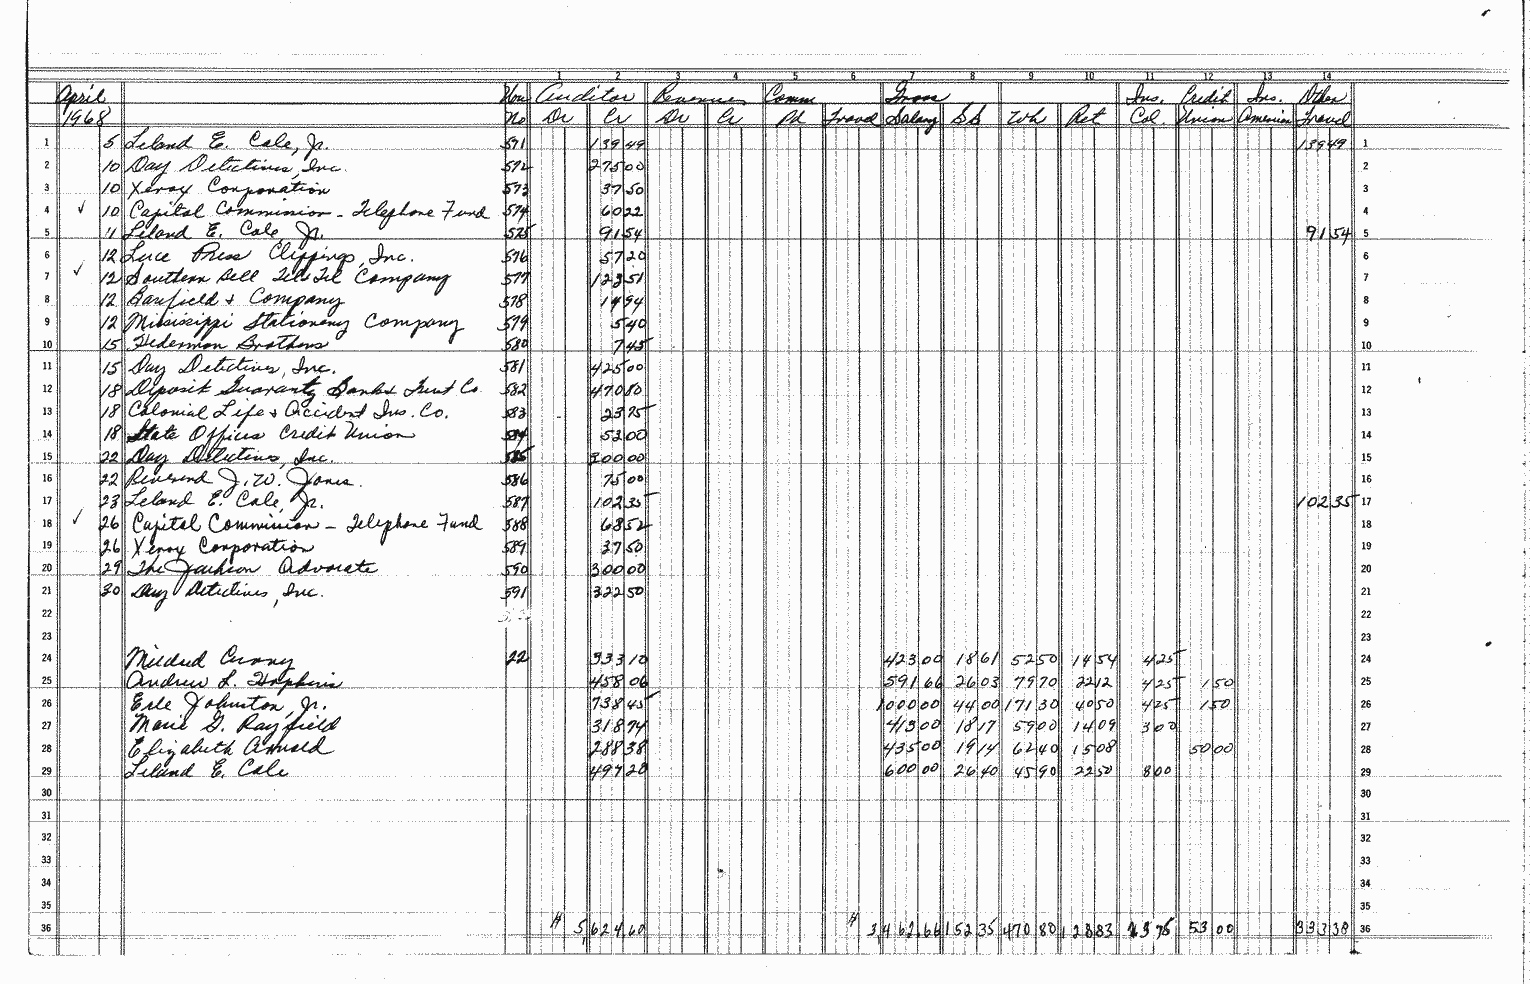 1 2 3 4 5 6 7 8 9 10 11 12 13 14
April Vou Auditor Revenue Comm Gross Ins. Credit Ins. Other
1968 No Dr Cr Dr Cr Pd Travel Salary S.S. Wh Ret Col. Union America Travel
1 5 Leland E. Cole, Jr. 571 139 49 139 49 1
2 10 Day Detectives, Inc. 572 275 00 2
3 10 Xerox Corporation 573 37 50 3
4 ✓ 10 Capital Commission - Telephone Fund 574 60 22 4
5 11 Leland E. Cole, Jr. 575 91 54 91 54 5
6 12 Luce Press Clippings, Inc. 576 57 20 6
7 ✓ 12 Southern Bell Tel & Tel Company 577 123 51 7
8 12 Barfield & Company 578 14 94 8
9 12 Mississippi Stationery Company 579 5 40 9
10 15 Hederman Brothers 580 7 45 10
11 15 Day Detectives, Inc. 581 425 00 11
12 18 Deposit Guaranty Bank & Trust Co. 582 470 80 12
13 18 Colonial Life & Accident Ins. Co. 583 23 75 13
14 18 State Offices Credit Union 584 53 00 14
15 22 Day Detectives, Inc. 585 300 00 15
16 22 Reverend J. W. Jones. 586 75 00 16
17 23 Leland E. Cole, Jr. 587 102 35 102 35 17
18 ✓ 26 Capital Commission - Telephone Fund 588 68 52 18
19 26 Xerox Corporation 589 37 50 19
20 29 The Jackson Advocate 590 300 00 20
21 30 Day Detectives, Inc. 591 322 50 21
22 22
23 23
24 Mildred Curry 22 333 10 423 00 18 61 52 50 14 54 4 25 24
25 Andrew L. Hopkins 458 06 591 66 26 03 79 70 22 12 4 25 1 50 25
26 Erle Johnston, Jr. 738 45 1000 00 44 00 171 30 40 50 4 25 1 50 26
27 Marie G. Rayfield 318 74 413 00 18 17 59 00 14 09 3 00 27
28 Elizabeth Arnold 288 38 435 00 19 14 62 40 15 08 50 00 28
29 Leland E. Cole 497 20 600 00 26 40 45 90 22 50 8 00 29
30 30
31 31
32 32
33 33
34 34
35 35
36 5,624 60 3,462.66 152 35 470 80 128 83 23 75 53 00 333 38 36